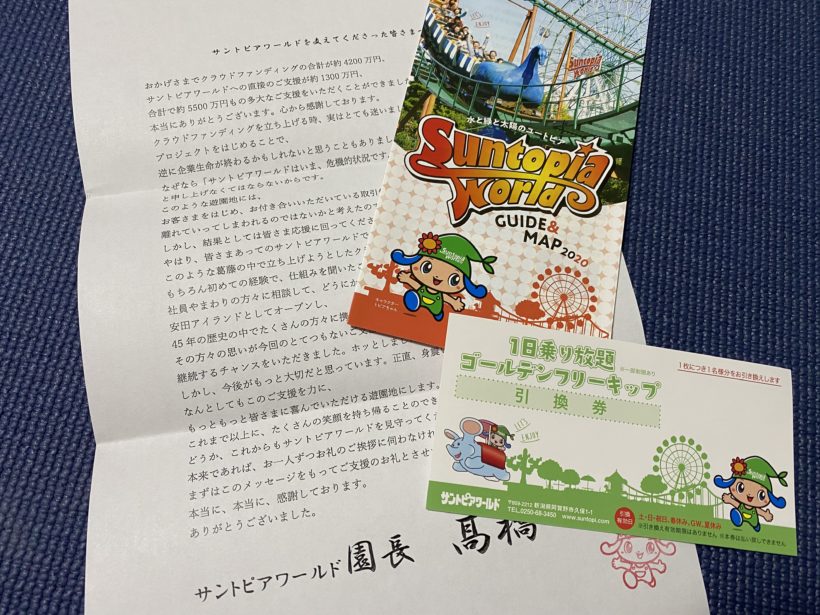 サントピアワールドを支えてくださった皆さまへ
おかげさまでクラウドファンディングの合計が約4200万円、
サントピアワールドへの直接のご支援が約1300万円、
合計で約5500万円もの多大なご支援をいただくことができました
本当にありがとうございます。心から感謝しております。
クラウドファンディングを立ち上げる時、実はとても迷いまし
プロジェクトをはじめることで、
逆に企業生命が終わるかもしれないと思うこともありまし
なぜなら「サントピアワールドはいま、危機的状況です
と申し上げなくてはならないからです。
このような遊園地には、
お客さまをはじめ、お付き合いいただいている取引
離れていってしまわれるのではないかと考えたので
しかし、結果としては皆さま応援に回ってくださ
やはり、皆さまあってのサントピアワールドで
このような葛藤の中で立ち上げようとしたク
もちろん初めての経験で、仕組みを聞いた
社員やまわりの方々に相談して、どうにか
安田アイランドとしてオープンし、
45年の歴史の中でたくさんの方々に
その方々の思いが今回のとてつもないご支
継続するチャンスをいただきました。ホッとしまし
しかし、今後がもっと大切だと思っています。正直、身震
なんとしてもこのご支援を力に、
もっともっと皆さまに喜んでいただける遊園地にします。
これまで以上に、たくさんの笑顔を持ち帰ることのでき
どうか、これからもサントピアワールドを見守ってくだ
本来であれば、お一人ずつお礼のご挨拶に伺わなけれ
まずはこのメッセージをもってご支援のお礼とさせ
本当に、本当に、感謝しております。
ありがとうございました。
サントピアワールド 園長 髙橋
LET'S ENJOY
Suntopia World
水と緑と太陽のユートピア
Suntopia World
GUIDE&
MAP2020
キャラクター
トピアちゃん
1日乗り放題
※一部制限あり
ゴールデンフリーキップ
引換券
1枚につき1名様分をお引き換えします
LET'S ENJOY
サントピアワールド
〒959-2212 新潟県阿賀野市久保1-1
TEL.0250-68-3450 www.suntopi.com
引換有効日
土・日・祝日、春休み、GW、夏休み
※引き換え有効期限はありません ※本券は払い戻しできません